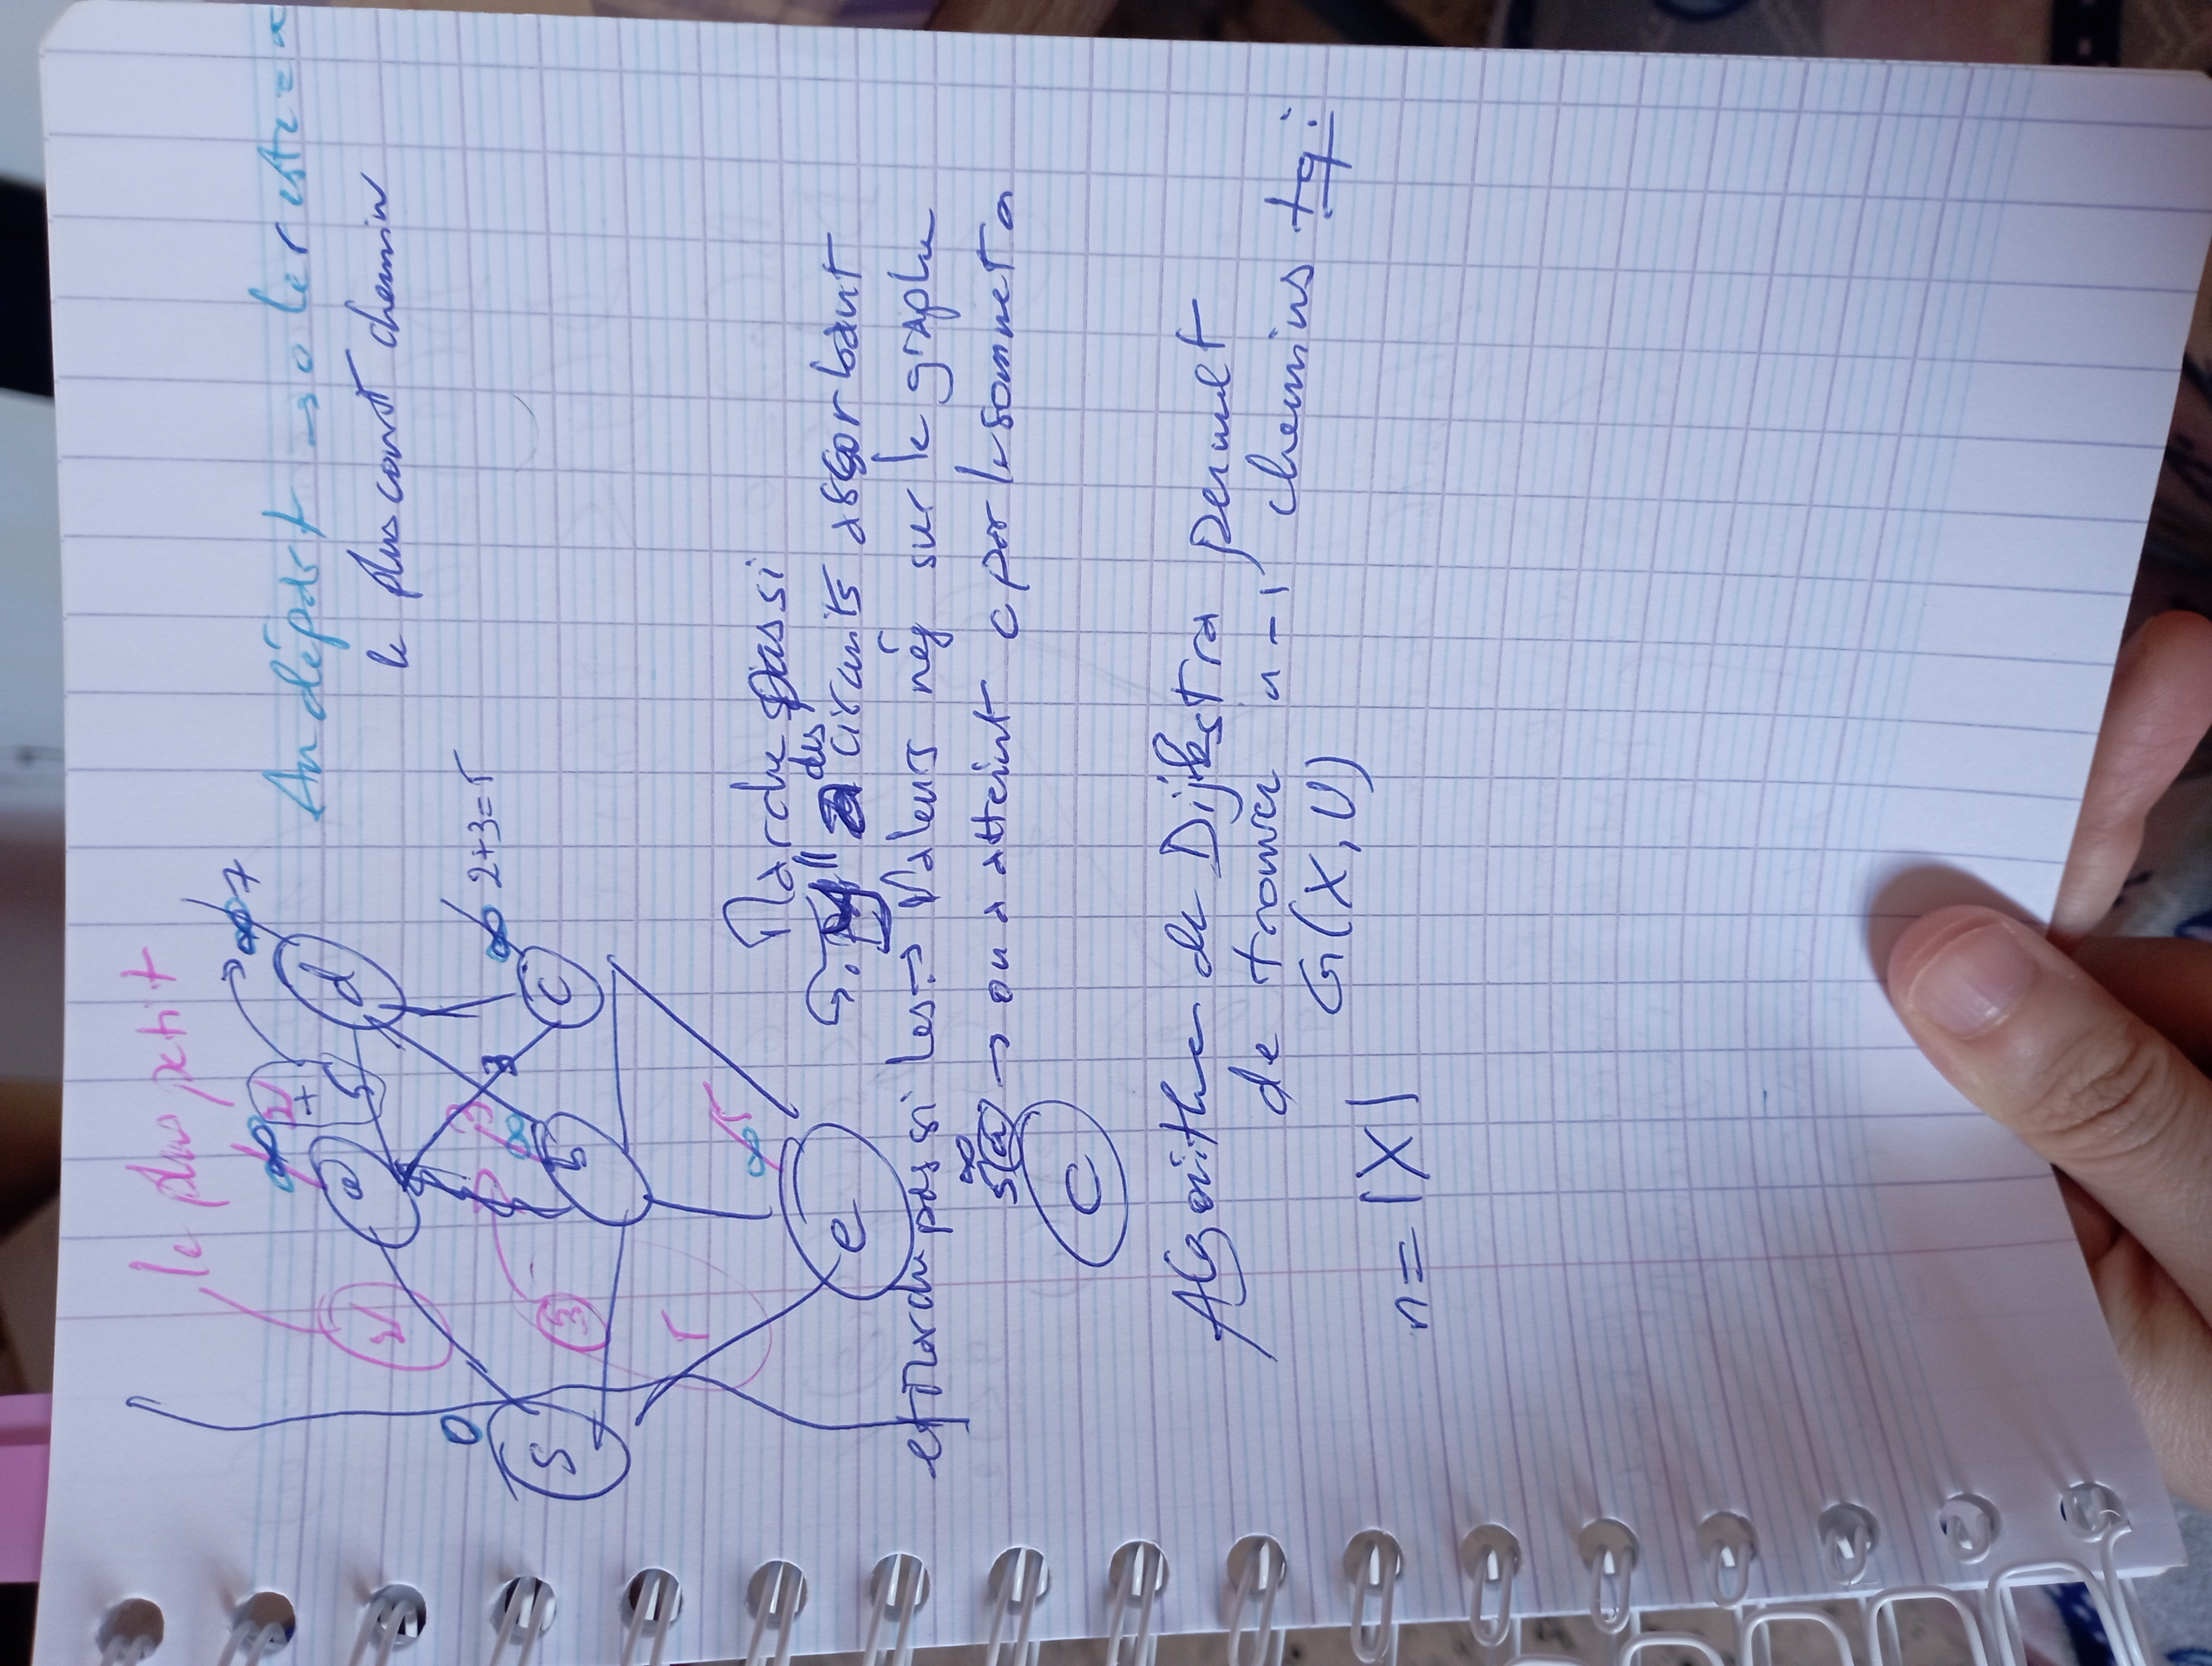 le plus petit
∞ 2 ∞ 7
+
a 5 d
Au départ → 0 le reste = ∞
2
le plus court chemin
0
3 3 ∞ 2+3=5
∞
S 3 b c
5
∞ 5
Marche pas si
e
des
" circuits absorbant
et marche pas si les → Valeurs nég sur le graphe
∞
5(a) → on a atteint c par le sommet a
C
Algorithme de Dijkstra permet
de trouver n-1 chemins tq:
G(X, U)
n = |X|